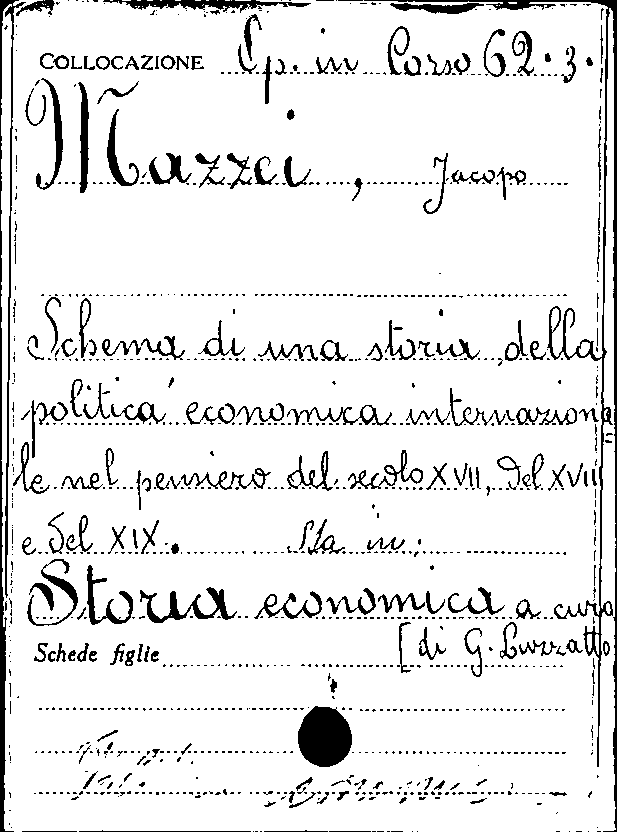 COLLOCAZIONE Ep. in Corso 62.3.
Mazzei, Jacopo
Schema di una storia della
politica economica internaziona
le nel pensiero del secolo XVII, del XVIII
e del XIX. Sta in:
Storia economica a cura
Schede figlie [di G. Luzzatto